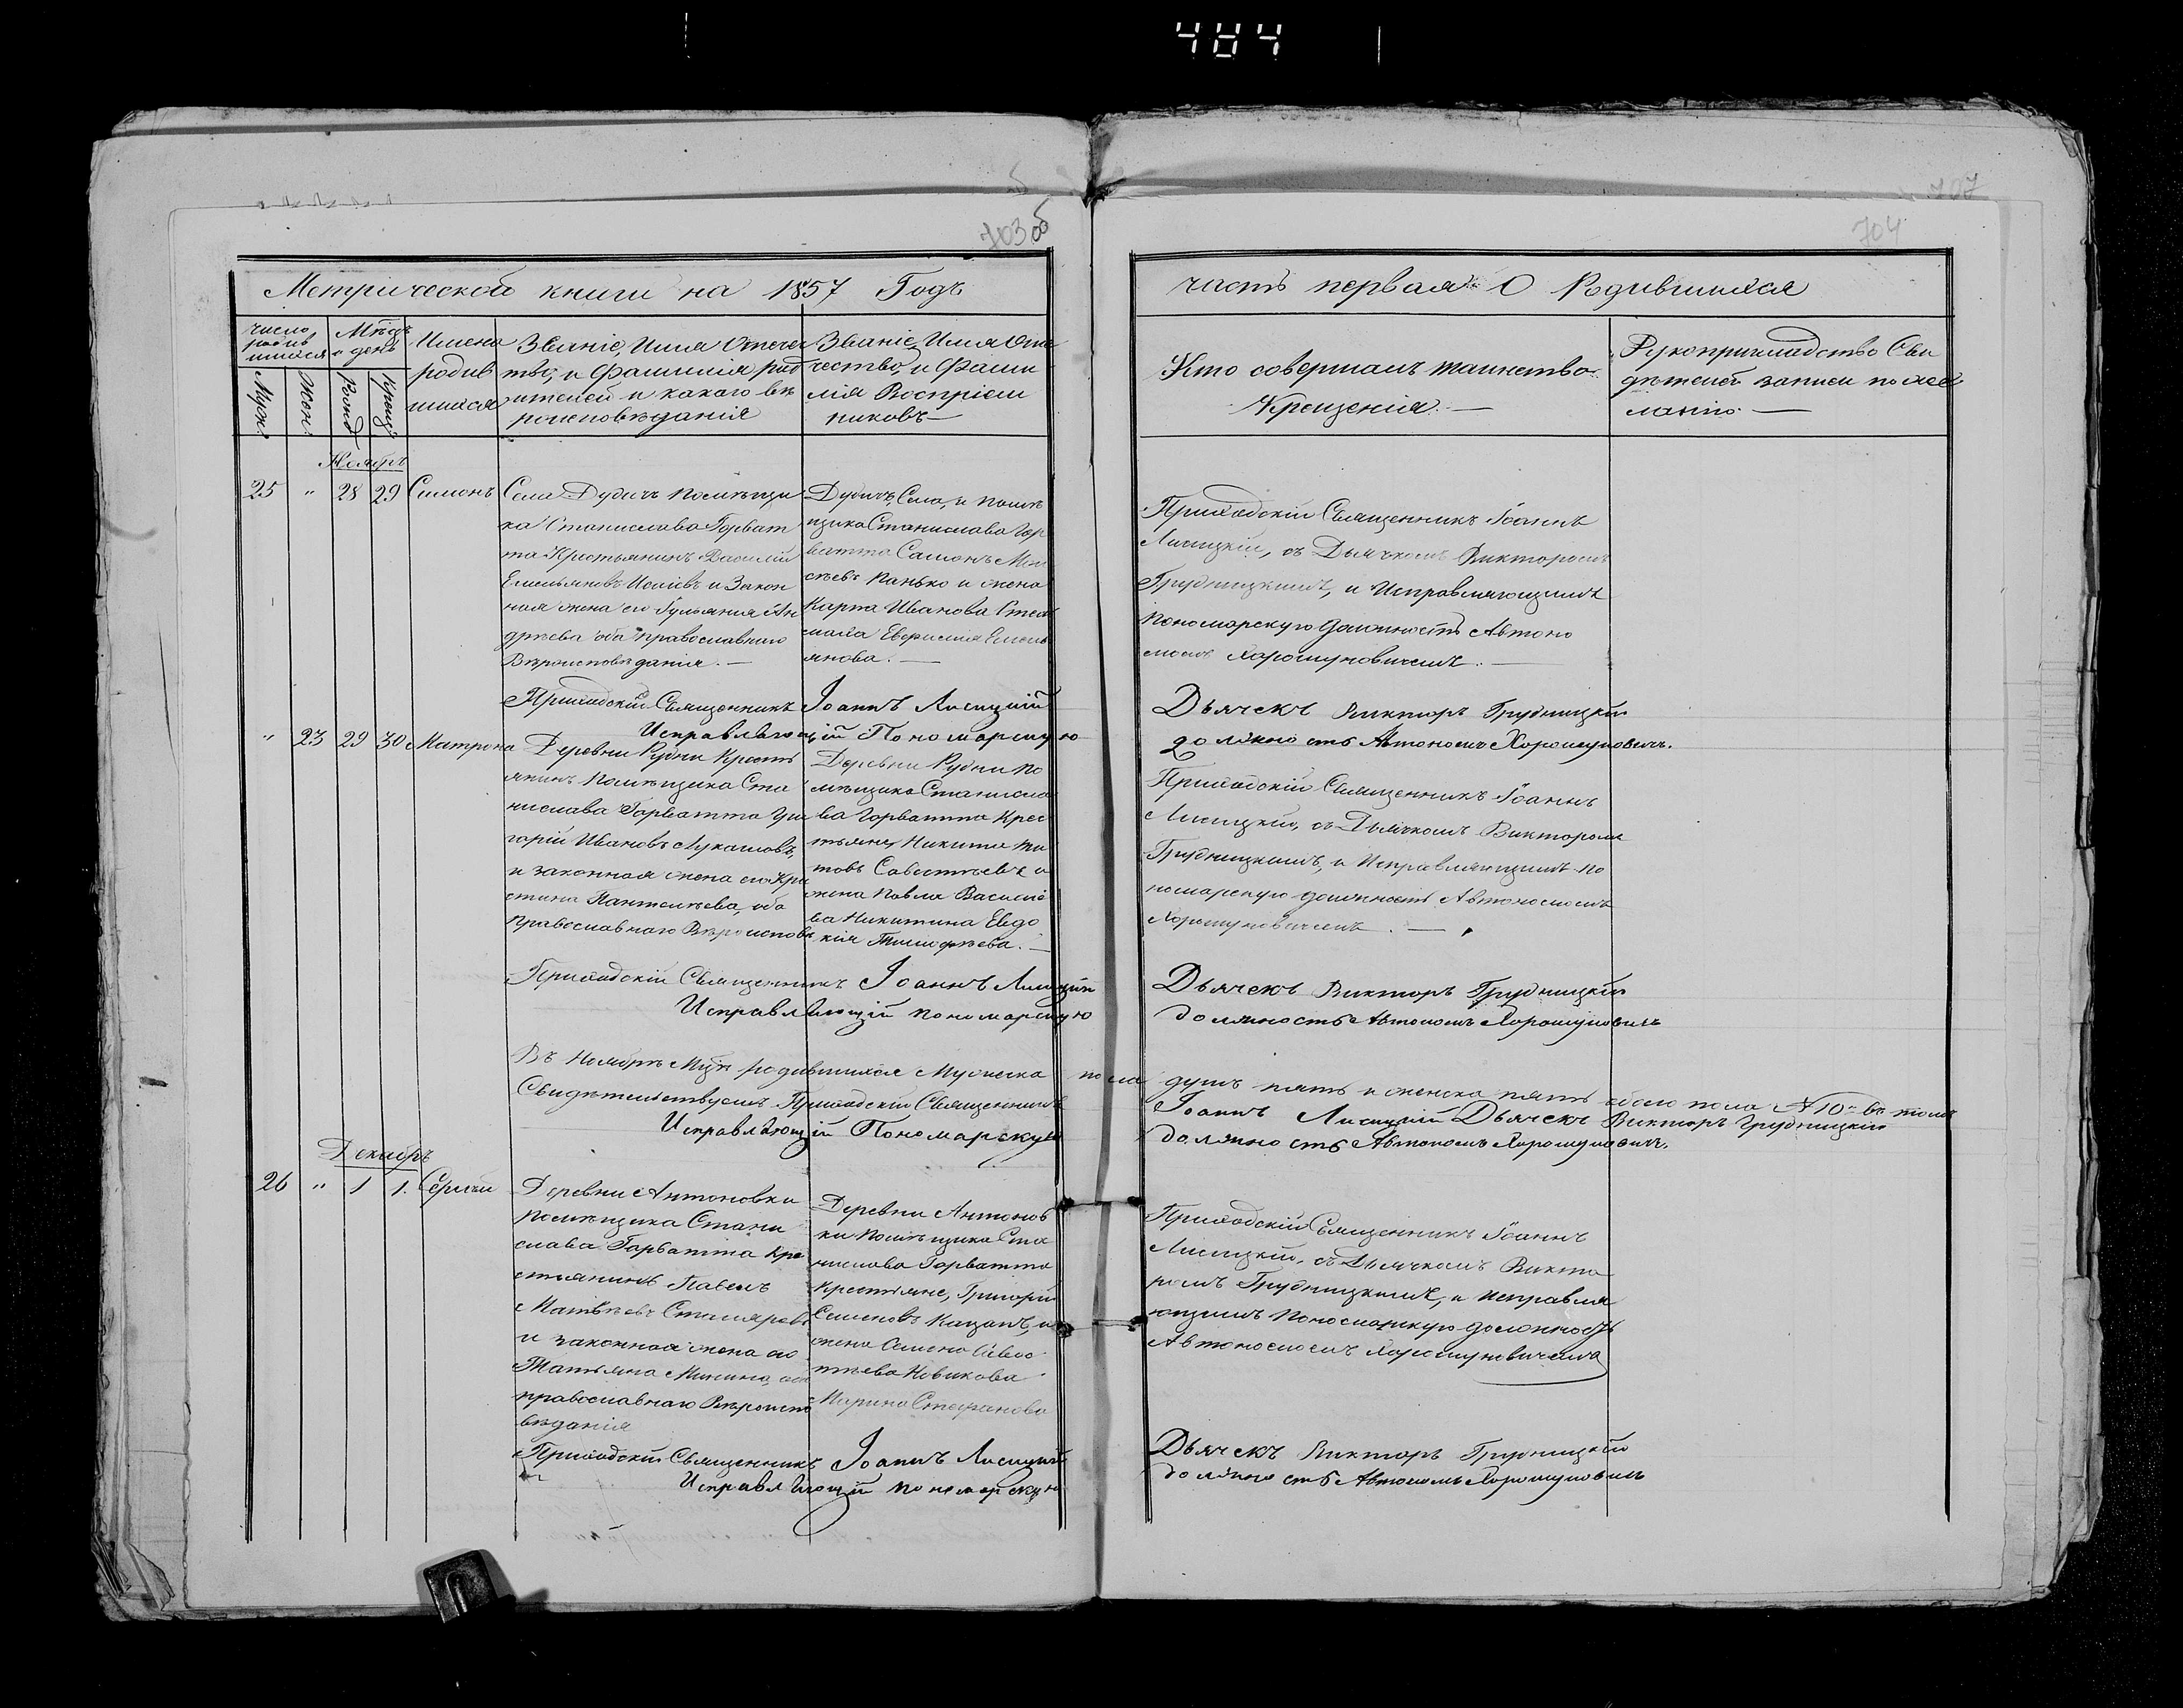 484
703 об
707
704
Метрической книги на 1857 Годъ
часть первая О Родившихся
число родив шихся
Мѣсяцъ и день
Муж:
Жен:
Рожд
Крещ
Имена
родив
шихся
Званіе, Имя Отече
ство, и Фамилія род
ителей и какого вѣ
роисповѣданія
Званіе, Имя Оте
чество, и Фами
лія Воспріем
никовъ
Кто совершалъ таинство
Крещенія.
Рукоприкладство Сви
дѣтелей записи по же
ланію.
Ноябрь
25 " 28 29 Симонъ
Села Дубичъ помѣщи
ка Станислава Горват
та Крестьянинъ Василій
Емельяновъ Исаiевъ и Закон
ная жена его Гульяния Ан
дрѣева оба православнаго
Вѣроисповѣданія.
Дубичъ, Села, и помѣ
щика Станислава Гор
ватта Самонъ Мои
сѣевъ Панько и жена
Карпа Иванова Стель
маха Евфимия Емель
янова.
Приходскій Священникъ Іоаннъ
Лисицкій, съ Дьячкомъ Викторомъ
Грудницкимъ, и Исправляющимъ
Пономарскую должность Автоно
момъ Хорошуновичемъ.
Приходскій Священникъ Іоаннъ Лисицкій
Дьячекъ Викторъ Грудницкій
Исправляющій Пономарскую
должность Автономъ Хорошуновичъ.
" 23 29 30 Матрона
Деревни Рудни Кресть
янинъ помѣщика Ста
нислава Горватта Гри
горій Ивановъ Лукашовъ,
и законная жена его Кри
стина Пантелѣева, оба
православнаго Вѣроисповѣ
Деревни Рудни по
мѣщика Станисла
ва Горватта Крес
тьяне Никита Ти
товъ Савостѣевъ и
жена Павла Василiе
ва Никитина Евдо
кія Тимофѣева.
Приходскій Священникъ Іоаннъ
Лисицкій, съ Дьячкомъ Викторомъ
Грудницкимъ, и Исправляющимъ по
номарскую должность Автономомъ
Хорошуновичемъ.
Приходскій Священникъ Іоаннъ Лисицкій
Дьячекъ Викторъ Грудницкій
Исправляющій пономарскую
должность Автономъ Хорошуновичъ
Въ Ноябрѣ Мцѣ родившихся Мужеска пола душъ пять и женска пять обоего пола № 10ъ въ томъ
Свидѣтельствуемъ Приходскій Священникъ Іоаннъ Лисицкій Дьячекъ Викторъ Грудницкій
Исправляющій Пономарскую должность Автономъ Хорошуновичъ.
Декабрь
26 " 1 1. Сергѣй
Деревни Антоновки
помѣщика Стани
слава Горватта Кре
стьянинъ Павелъ
Матвѣевъ Столяровъ
и законная жена его
Татьяна Минина, оба
православнаго Вѣроиспо
вѣданія
Деревни Антонов
ки Помѣщика Ста
нислава Горватта
Крестьяне, Григорій
Семеновъ Кацапъ, и
жена Семена Савос
тѣева Новикова
Марина Стефанова
Приходскій Священникъ Іоаннъ
Лисицкій, съ Дьячкомъ Викто
ромъ Грудницкимъ, и исправля
ющимъ Пономарскую должность
Автономомъ Хорошуновичемъ
Приходскій Священникъ Іоаннъ Лисицкій
Дьячекъ Викторъ Грудницкій
Исправляющій пономарскую
должность Автономъ Хорошуновичъ